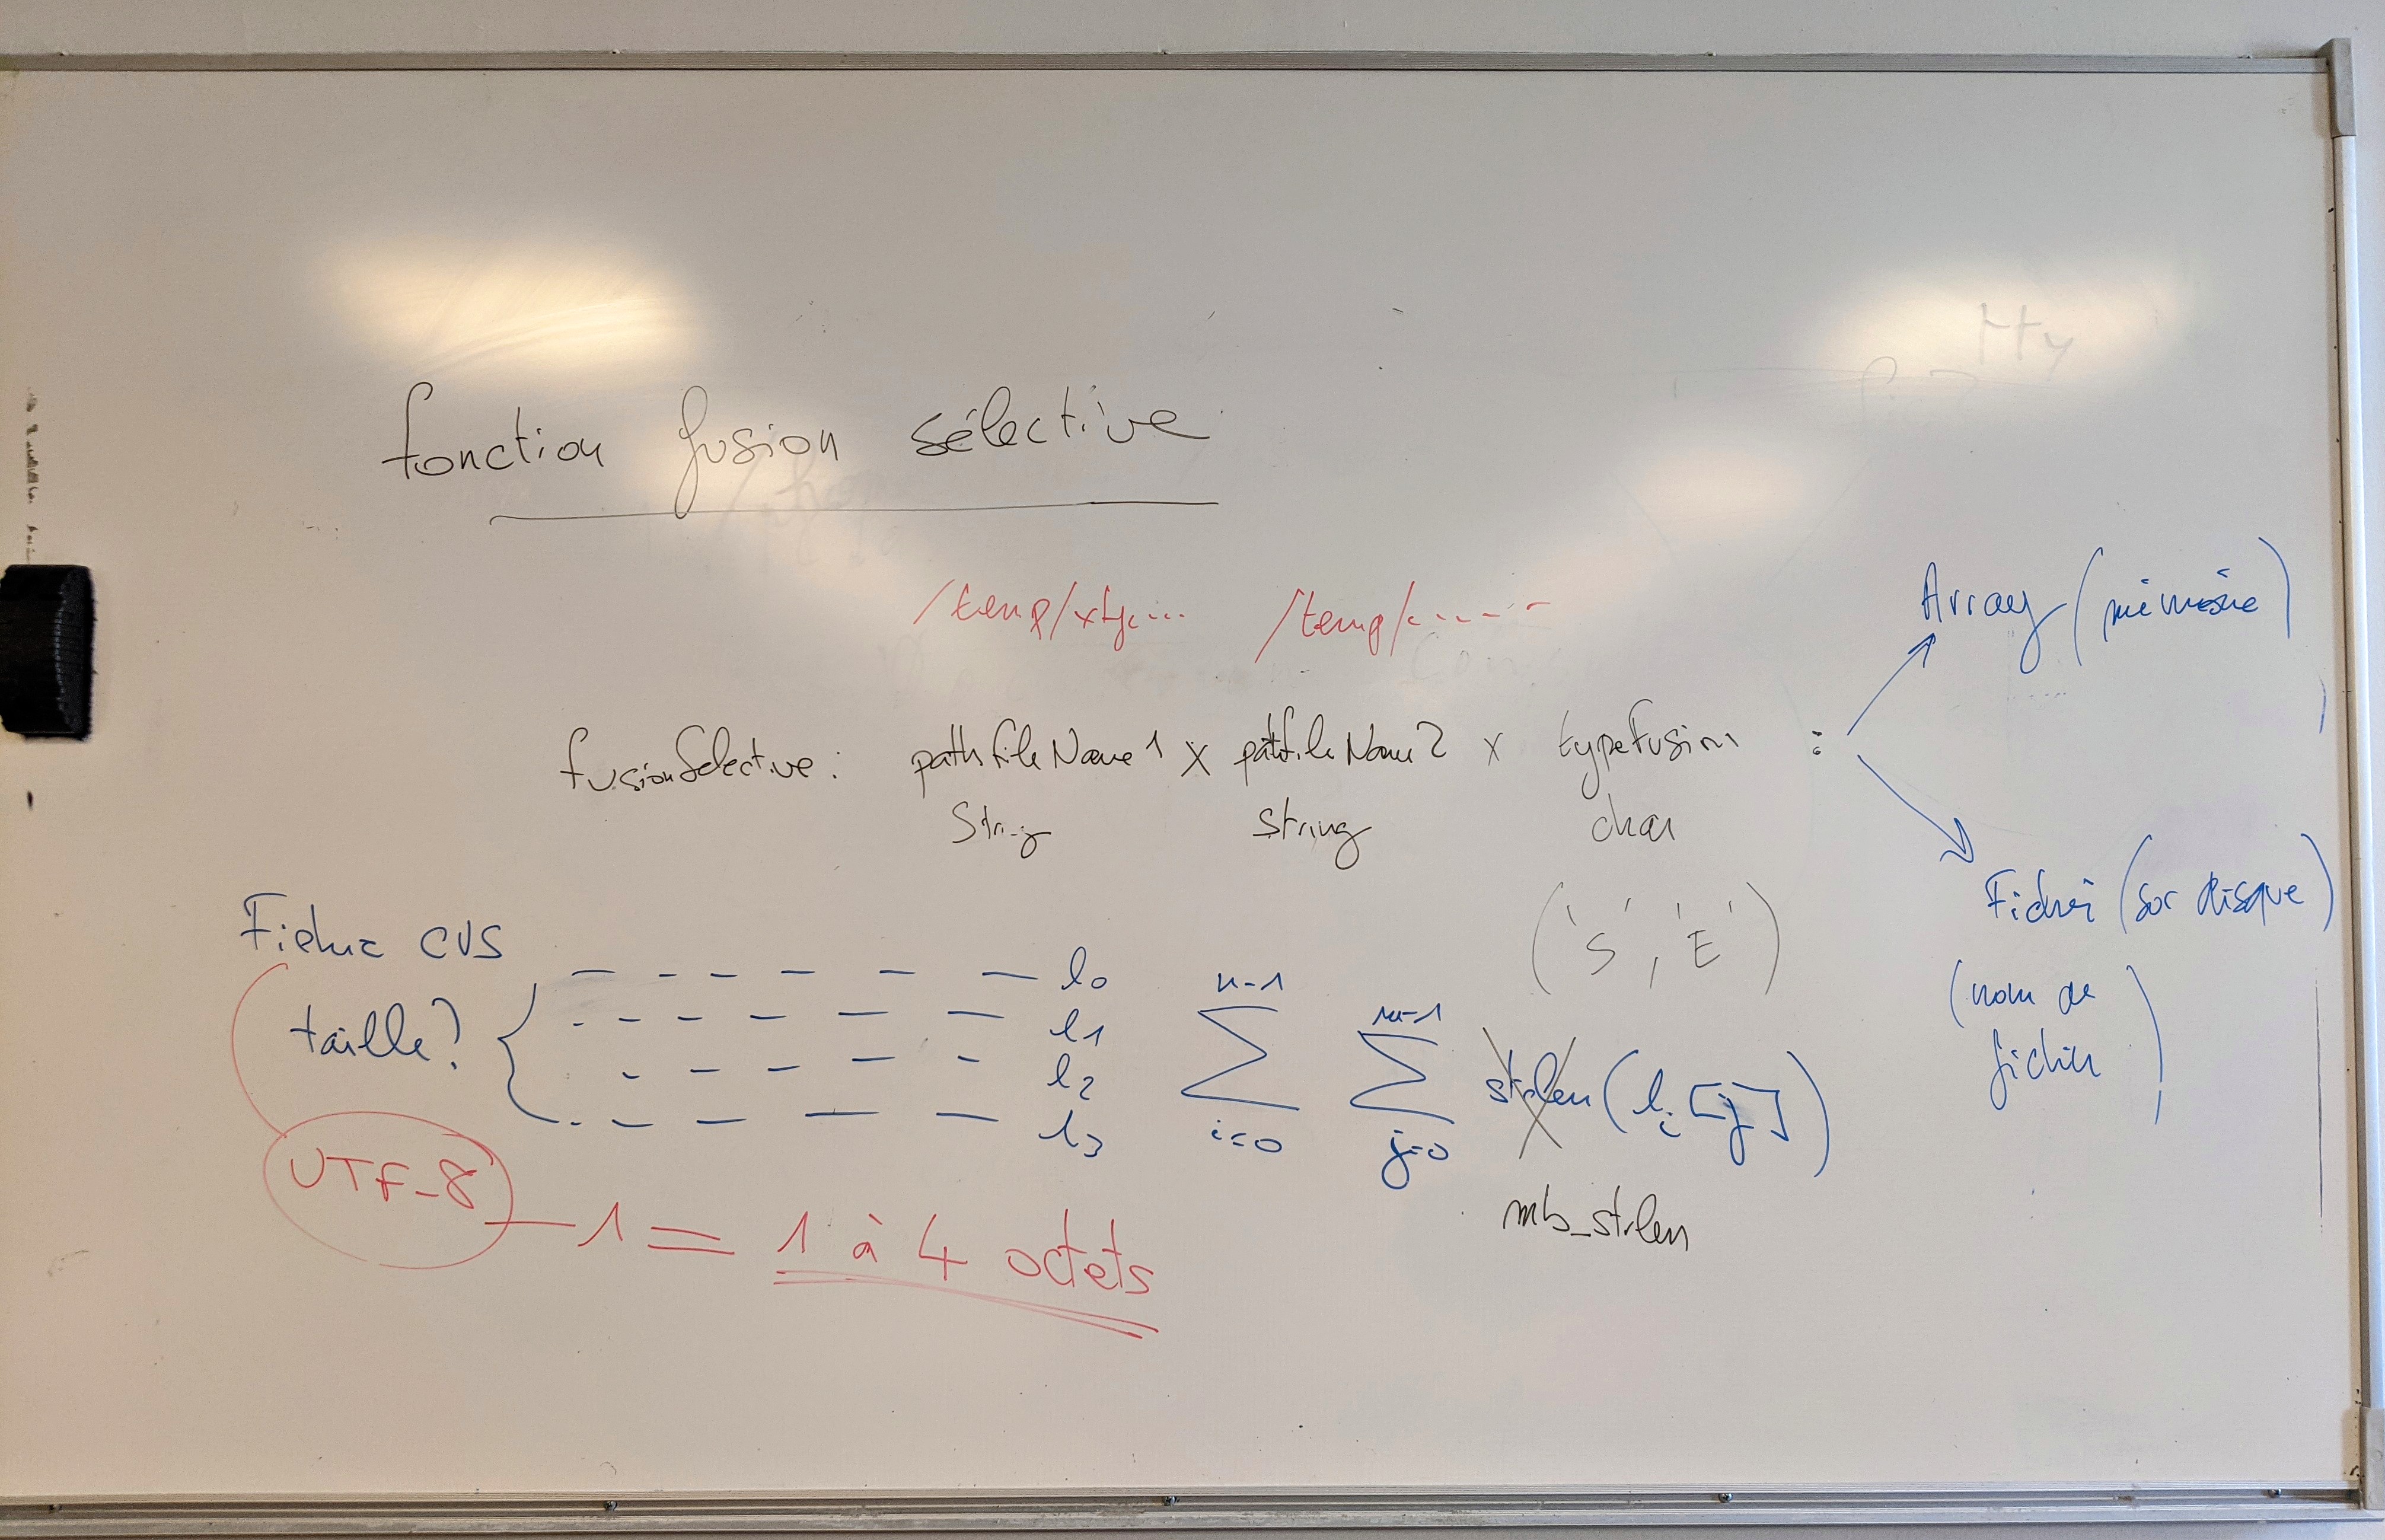 fonction fusion sélective
/temp/xty... /temp/.....
Array (mémoire)
fusionSelective: pathfileName1 x pathfileName2 x typeFusion :
String string char
('S', 'E')
Fichier (sur disque)
(nom de
fichier)
Fichier CVS
taille? {
l0
l1
l2
l3
n-1 m-1
∑ ∑ strlen(li[j])
i=0 j=0
mb_strlen
UTF-8 — 1 = 1 à 4 octets